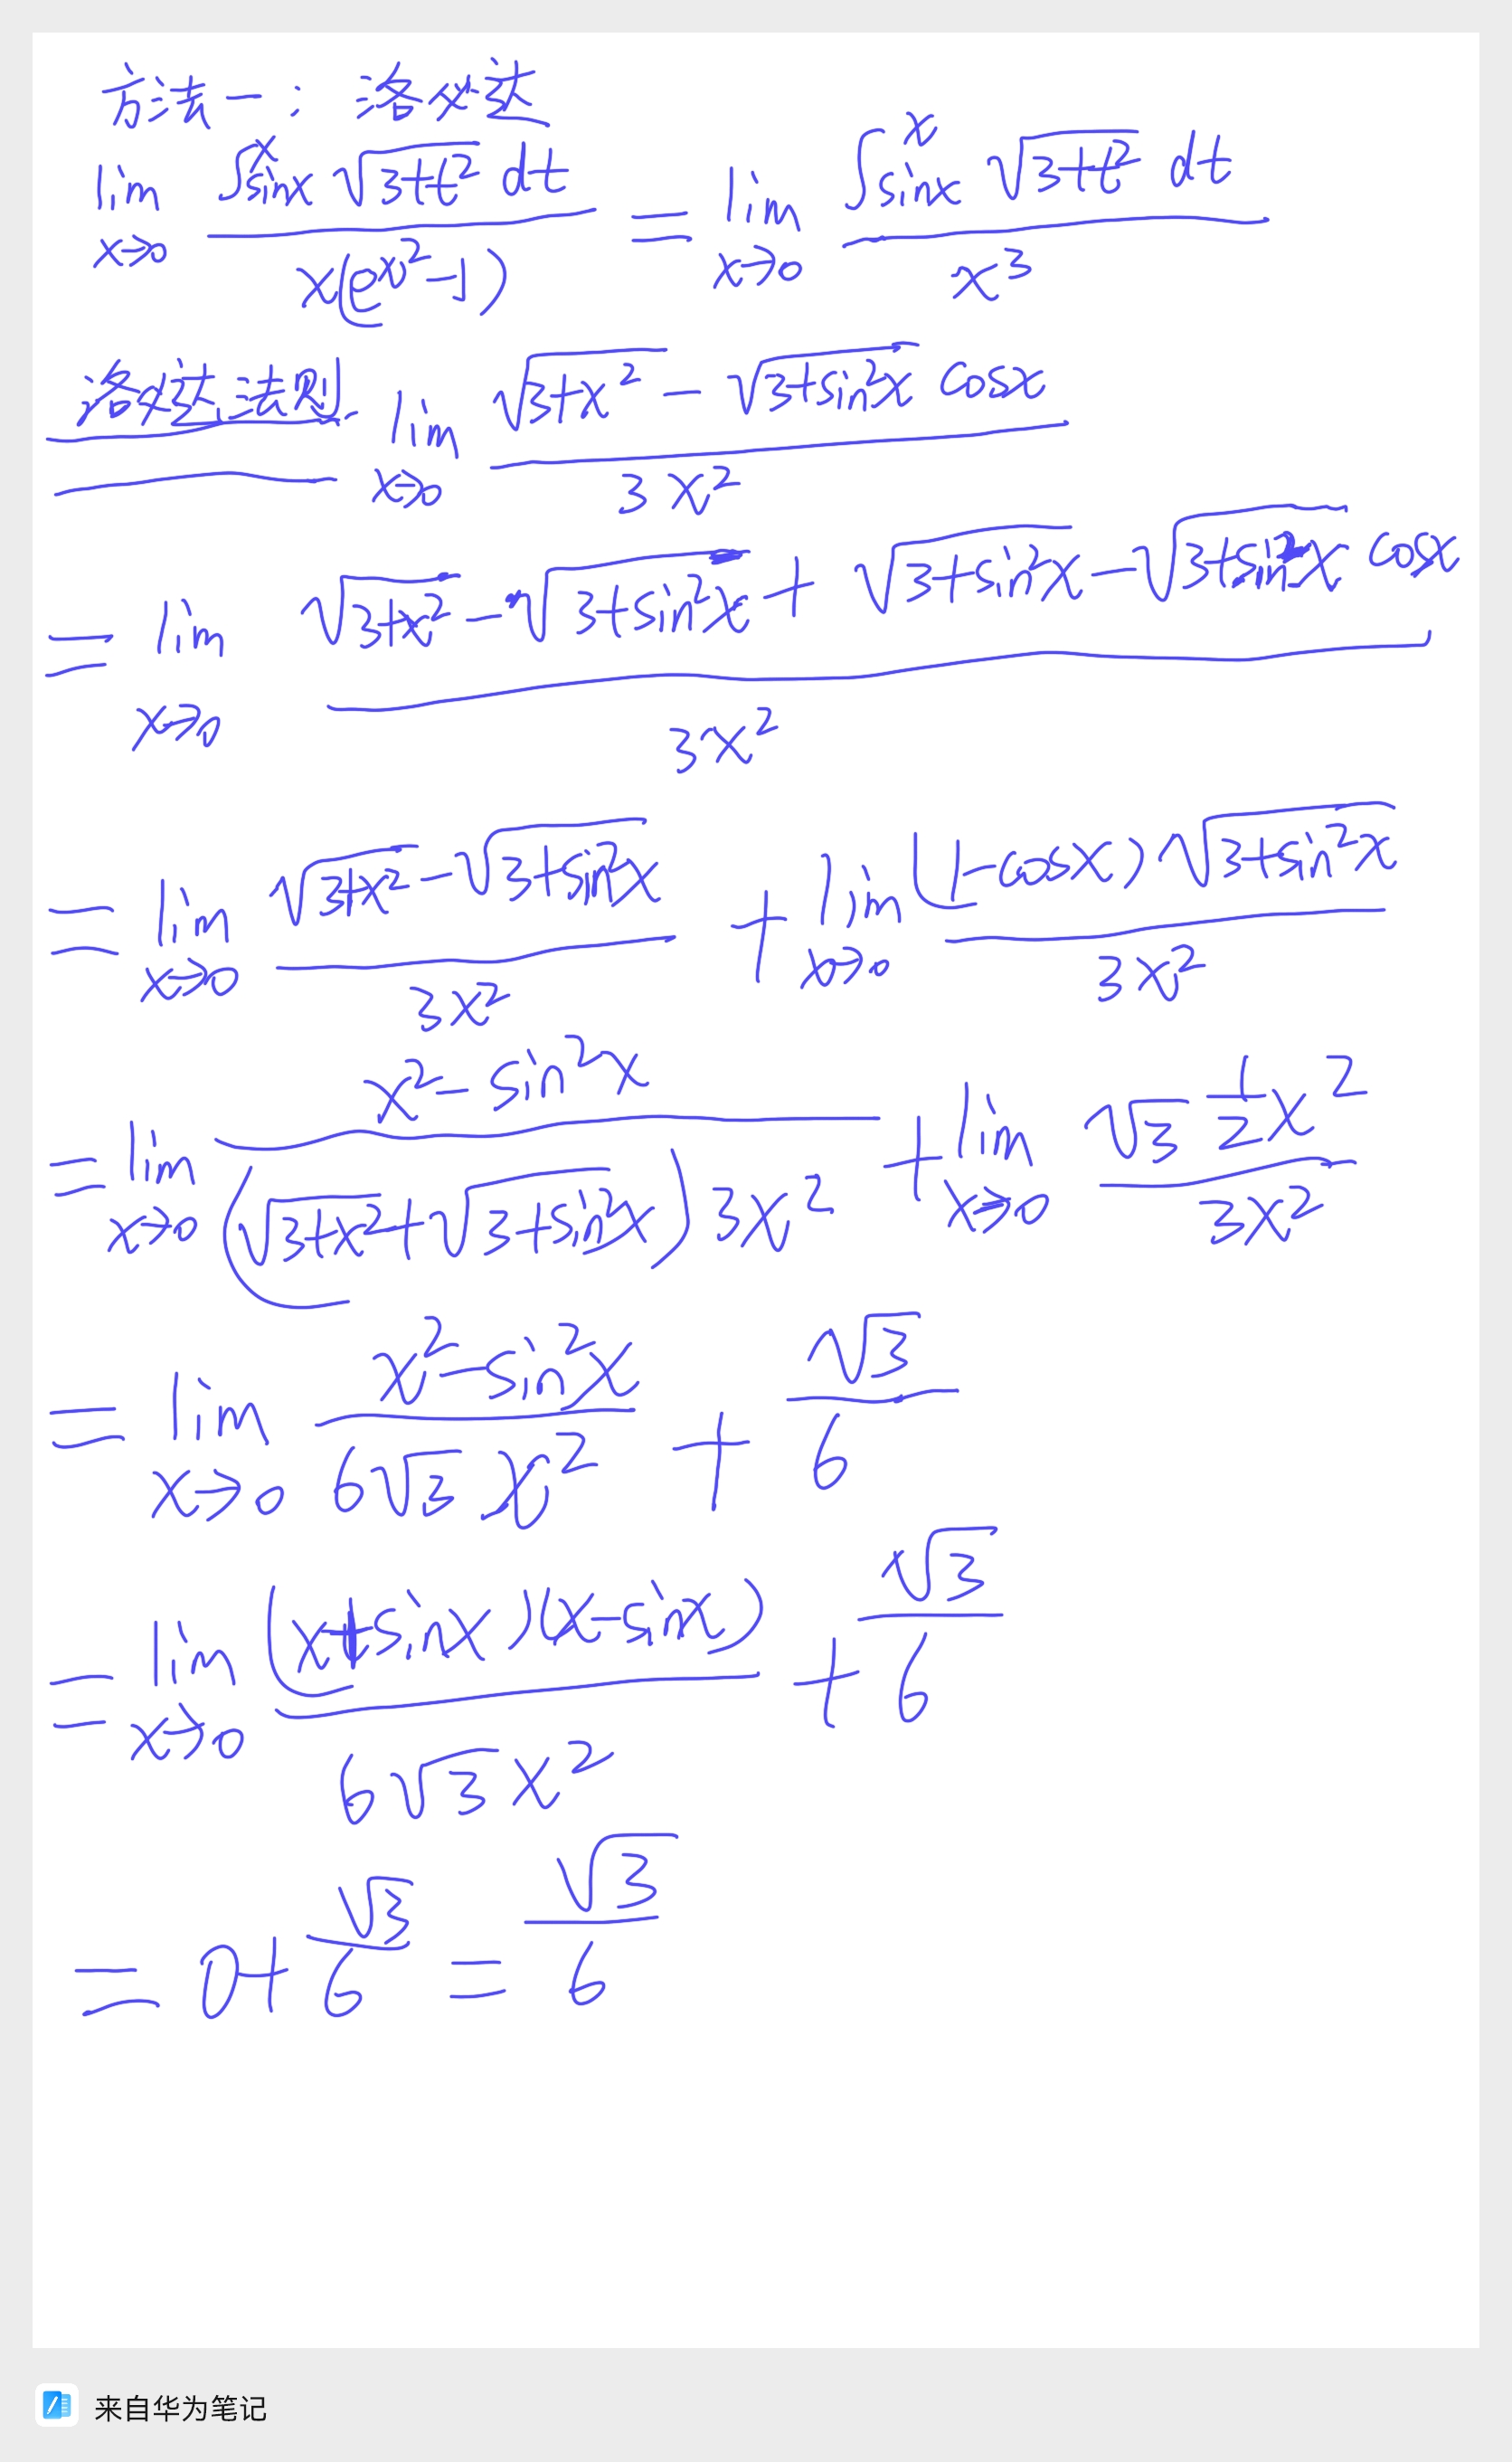 方法一：洛必达
lim_{x→0} ∫_{sinx}^{x} √(3+t²) dt / x(e^{x²}-1) = lim_{x→0} ∫_{sinx}^{x} √(3+t²) dt / x³
洛必达法则 lim_{x→0} (√(3+x²) - √(3+sin²x) cosx) / 3x²
= lim_{x→0} (√(3+x²) - √(3+sin²x) + √(3+sin²x) - √(3+sin²x) cosx) / 3x²
= lim_{x→0} (√(3+x²) - √(3+sin²x)) / 3x² + lim_{x→0} (1-cosx)√(3+sin²x) / 3x²
= lim_{x→0} (x²-sin²x) / (√(3+x²)+√(3+sin²x))3x² + lim_{x→0} √3 ½x² / 3x²
= lim_{x→0} (x²-sin²x) / 6√3 x² + √3/6
= lim_{x→0} (x+sinx)(x-sinx) / 6√3 x² + √3/6
= 0+√3/6 = √3/6
来自华为笔记